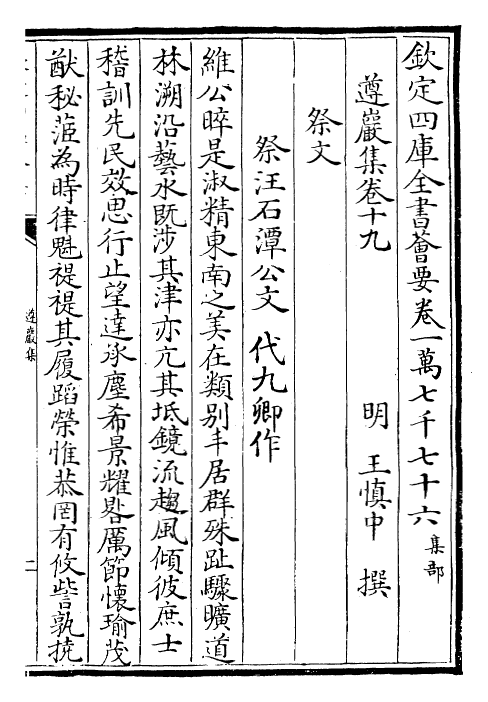 欽定四庫全書薈要卷一萬七千七十六 集部
遵巖集卷十九
明 王慎中 撰
祭文
祭汪石潭公文 代九卿作
維公晬是淑精東南之美在類别丰居群殊趾驟曠道
林溯沿藝水既涉其津亦亢其坻鏡流趨風傾彼庶士
稽訓先民效思行止望達承塵希景耀晷厲節懷瑜茂
猷秘蒞為時律魁禔禔其履蹈榮惟恭罔有攸訾孰撓
遵巖集
二